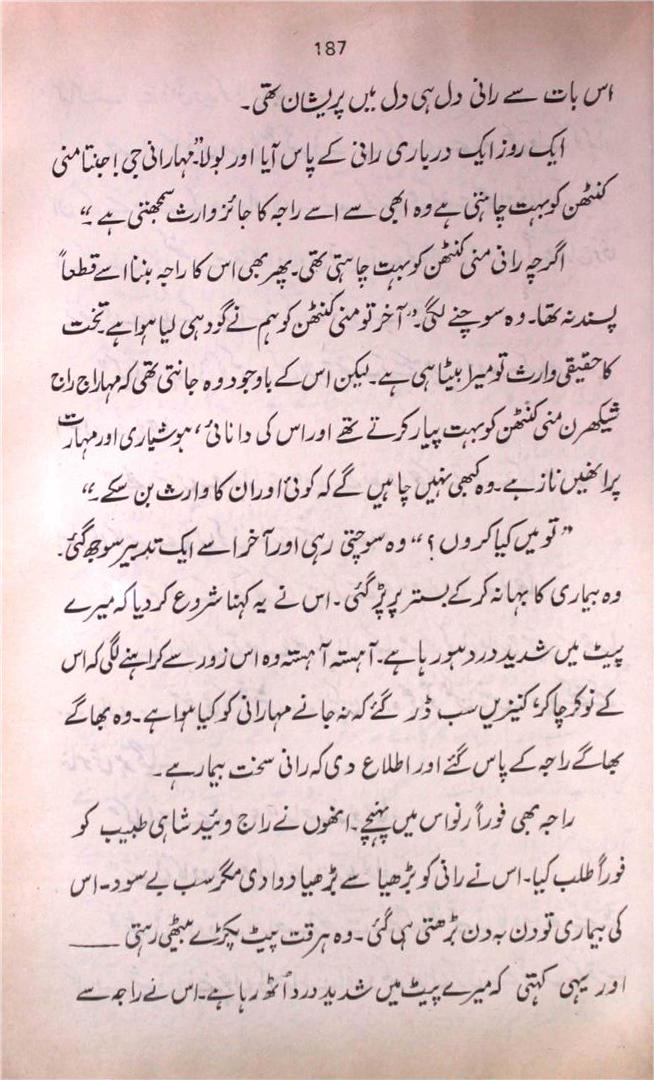 187
اس بات سے رانی دل ہی دل میں پریشان تھی۔
ایک روز ایک درباری رانی کے پاس آیا اور بولا ”مہارانی جی! جنتا منی
کنٹھن کو بہت چاہتی ہے وہ ابھی سے اسے راجہ کا جائز وارث سمجھتی ہے۔“
اگرچہ رانی منی کنٹھن کو بہت چاہتی تھی۔ پھر بھی اس کا راجہ بننا اسے قطعاً
پسند نہ تھا۔ وہ سوچنے لگی۔ ”آخر تو منی کنٹھن کو ہم نے گود ہی لیا ہوا ہے۔ تخت
کا حقیقی وارث تو میرا بیٹا ہی ہے۔ لیکن اس کے باوجود وہ جانتی تھی کہ مہاراج راج
شیکھرن منی کنٹھن کو بہت پیار کرتے تھے اور اس کی دانائی، ہوشیاری اور مہارت
پر انھیں ناز ہے۔ وہ کبھی نہیں چاہیں گے کہ کوئی اور ان کا وارث بن سکے۔“
”تو میں کیا کروں؟“ وہ سوچتی رہی اور آخر اسے ایک تدبیر سوجھ گئی۔
وہ بیماری کا بہانہ کر کے بستر پر پڑ گئی۔ اس نے یہ کہنا شروع کر دیا کہ میرے
پیٹ میں شدید درد ہو رہا ہے۔ آہستہ آہستہ وہ اس زور سے کراہنے لگی کہ اس
کے نوکر چاکر، کنیزیں سب ڈر گئے کہ نہ جانے مہارانی کو کیا ہوا ہے۔ وہ بھاگے
بھاگے راجہ کے پاس گئے اور اطلاع دی کہ رانی سخت بیمار ہے۔
راجہ بھی فوراً رنواس میں پہنچے۔ انھوں نے راج وئید شاہی طبیب کو
فوراً طلب کیا۔ اس نے رانی کو بڑھیا سے بڑھیا دوا دی مگر سب بے سود۔ اس
کی بیماری تو دن بہ دن بڑھتی ہی گئی۔ وہ ہر وقت پیٹ پکڑے بیٹھی رہتی ——
اور یہی کہتی کہ میرے پیٹ میں شدید درد اٹھ رہا ہے۔ اس نے راجہ سے